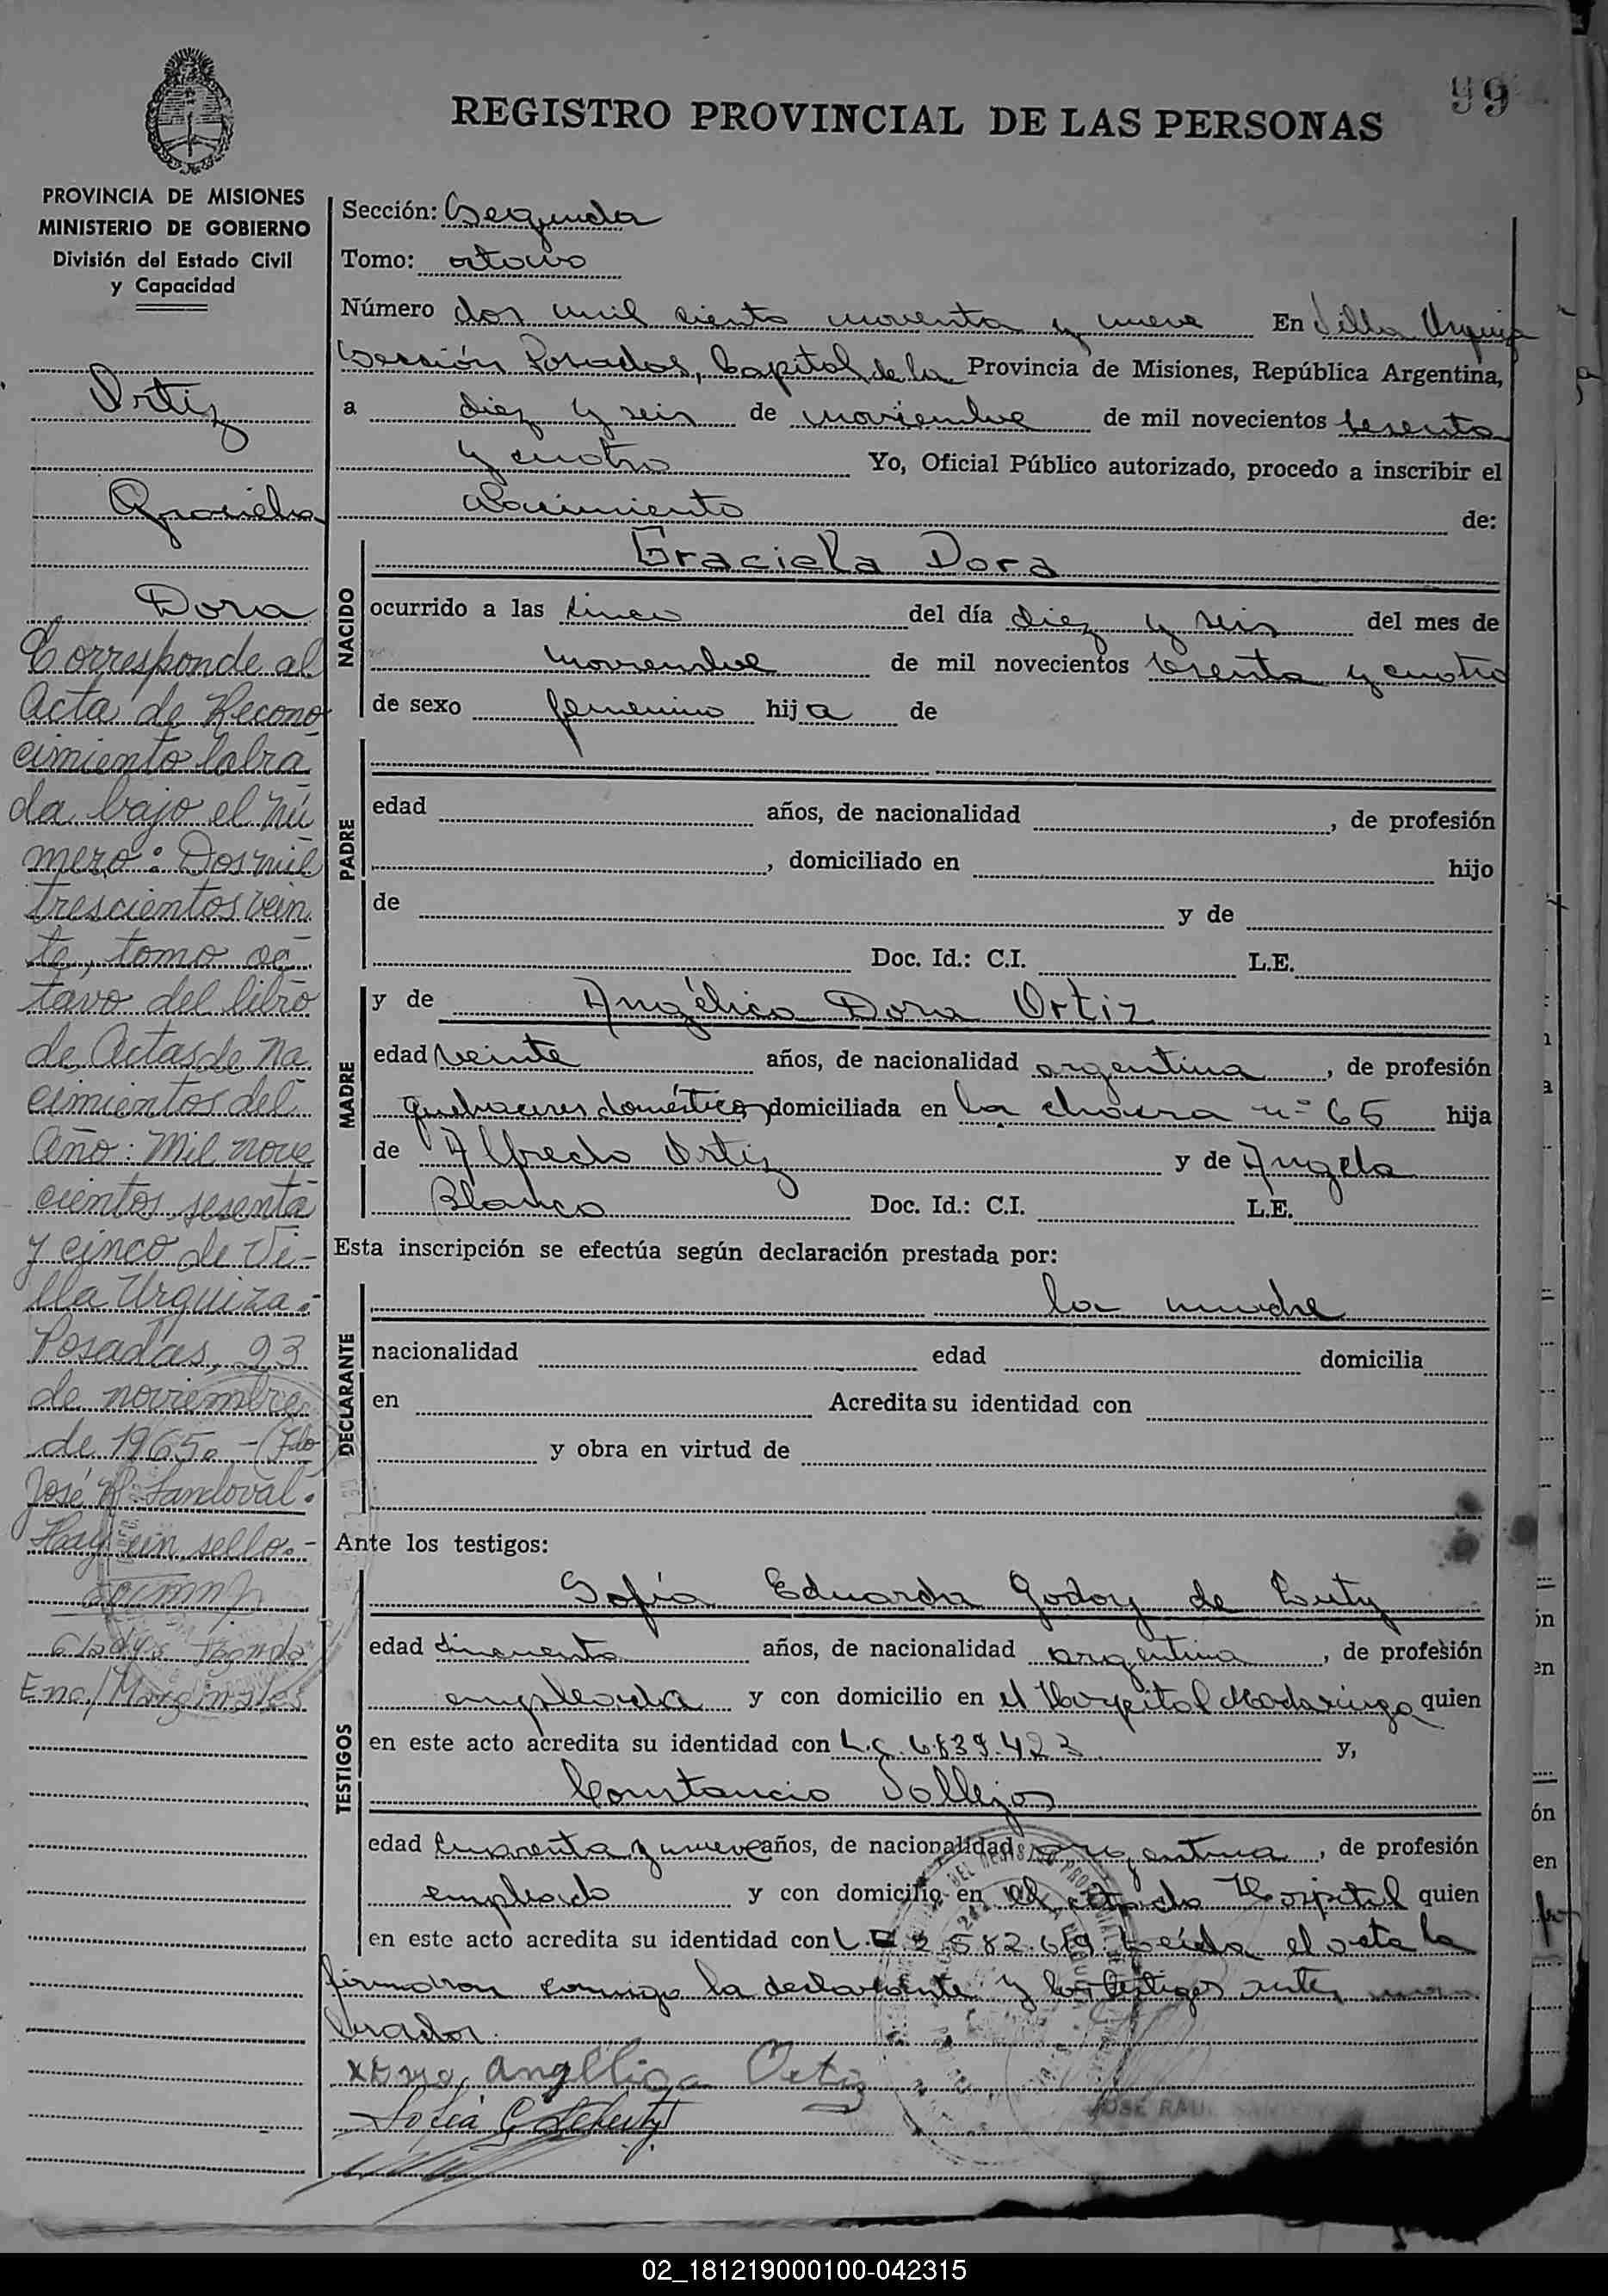 99
REGISTRO PROVINCIAL DE LAS PERSONAS
PROVINCIA DE MISIONES
MINISTERIO DE GOBIERNO
División del Estado Civil
y Capacidad
Ortiz
Graciela
Dora
Corresponde al
Acta de Recono
cimiento labra
da bajo el nú
mero: Dos mil
trescientos vein
te, tomo oc
tavo del libro
de Actas de Na
cimientos del
Año: Mil nove
cientos sesenta
y cinco de Vi-
lla Urquiza.-
Posadas, 23
de noviembre
de 1965.-(Fdo
José R. Sandoval.
Hay un sello.-
Gladys
Enc/Marginales
Sección: Segunda
Tomo: octavo
Número dos mil ciento noventa y nueve En Villa Urquiza
Sección Posadas, Capital de la Provincia de Misiones, República Argentina,
a diez y seis de noviembre de mil novecientos sesenta
y cuatro Yo, Oficial Público autorizado, procedo a inscribir el
Nacimiento de:
NACIDO
Graciela Dora
ocurrido a las cinco del día diez y seis del mes de
noviembre de mil novecientos sesenta y cuatro
de sexo femenino hija de
PADRE
edad años, de nacionalidad , de profesión
, domiciliado en hijo
de y de
Doc. Id.: C.I. L.E.
MADRE
y de Angélica Dora Ortiz
edad veinte años, de nacionalidad argentina, de profesión
quehaceres domésticos, domiciliada en la chacra nº 65 hija
de Alfredo Ortiz y de Angela
Blanco Doc. Id.: C.I. L.E.
Esta inscripción se efectúa según declaración prestada por:
DECLARANTE
la madre
nacionalidad edad domicilia
en Acredita su identidad con
y obra en virtud de
Ante los testigos:
TESTIGOS
Sofía Eduarda Godoy de Luty
edad cincuenta años, de nacionalidad argentina, de profesión
empleada y con domicilio en el Hospital Madariaga quien
en este acto acredita su identidad con L.C. 6.839.423 y,
Constancio Vallejos
edad cuarenta y nueve años, de nacionalidad argentina, de profesión
empleado y con domicilio en el citado Hospital quien
en este acto acredita su identidad con L. Leída el acta la
firmaron conmigo la declarante y los testigos antes nom
brados.
Angelica Ortiz
Sofia G de Luty
JOSE RAUL
02_181219000100-042315